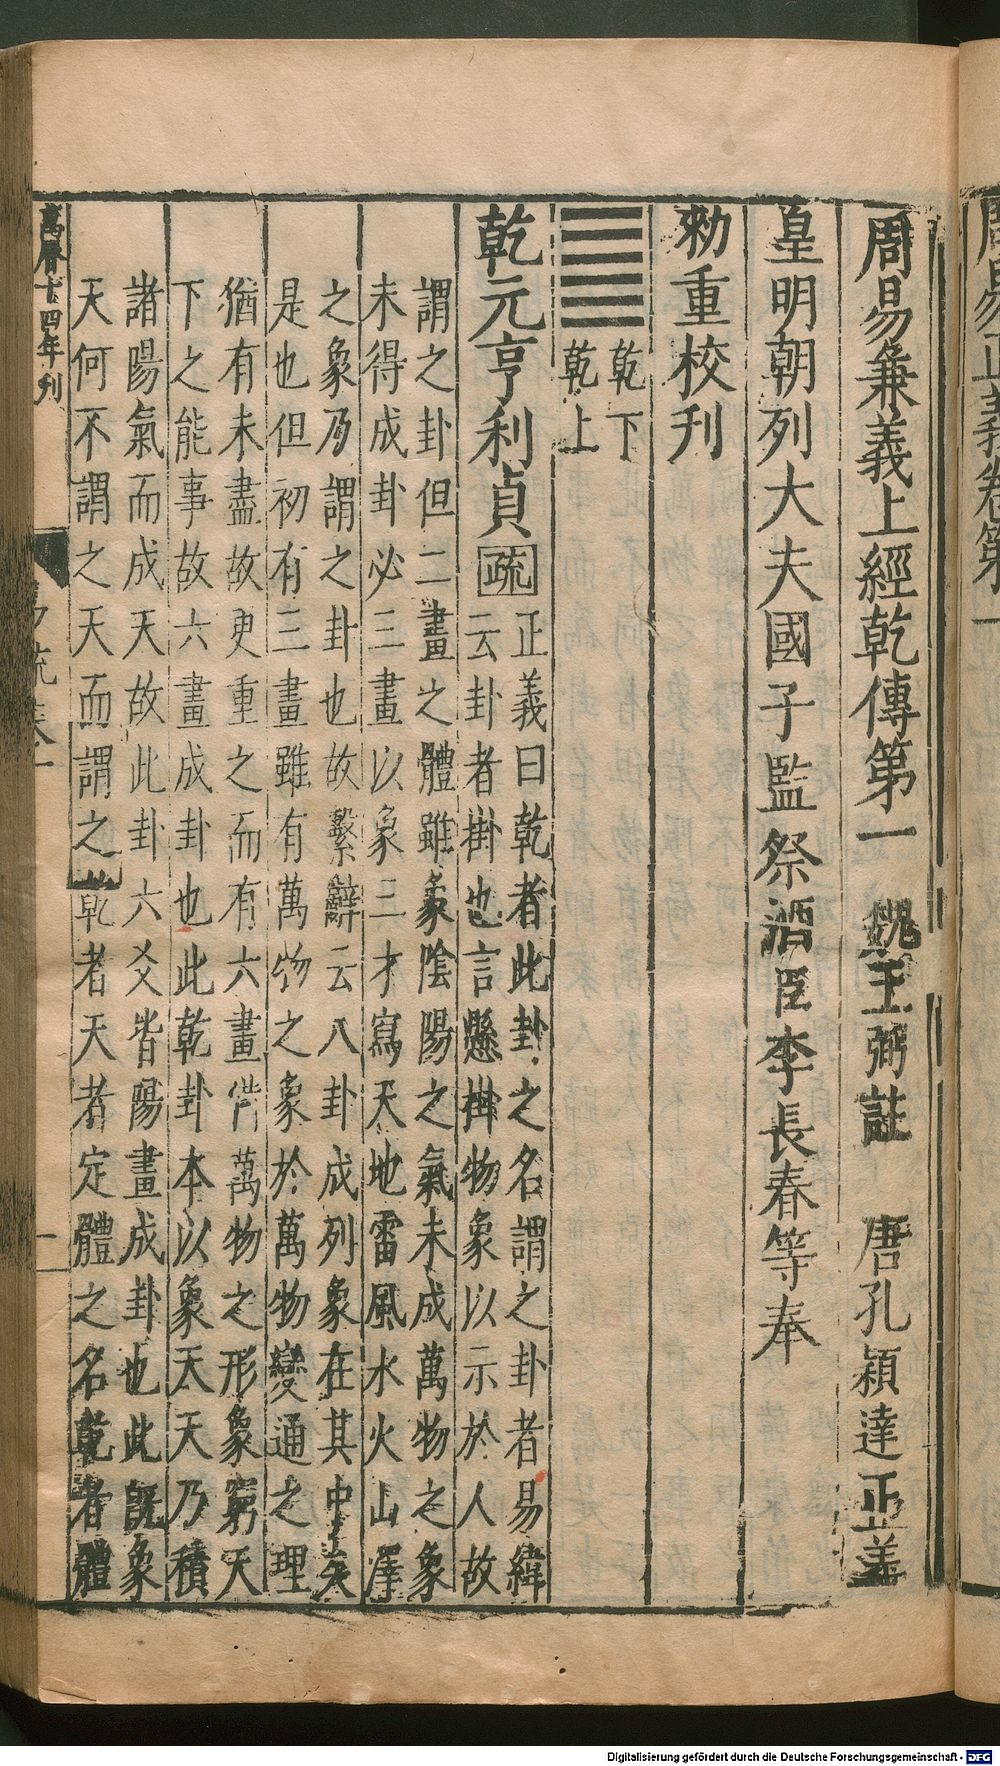 周易兼義上經乾傳第一　魏王弼註　唐孔穎達正義
皇明朝列大夫國子監祭酒臣李長春等奉
勑重校刊
乾下
乾上
乾元亨利貞疏
正義曰乾者此卦之名謂之卦者易緯
云卦者掛也言懸掛物象以示於人故
謂之卦但二畫之體雖象陰陽之氣未成萬物之象
未得成卦必三畫以象三才寫天地雷風水火山澤
之象乃謂之卦也故繫辭云八卦成列象在其中矣
是也但初有三畫雖有萬物之象於萬物變通之理
猶有未盡故更重之而有六畫備萬物之形象窮天
下之能事故六畫成卦也此乾卦本以象天天乃積
諸陽氣而成天故此卦六爻皆陽畫成卦也此既象
天何不謂之天而謂之乾者天者定體之名乾者體
萬曆十四年刊
易疏卷一
一
Digitalisierung gefördert durch die Deutsche Forschungsgemeinschaft - DFG